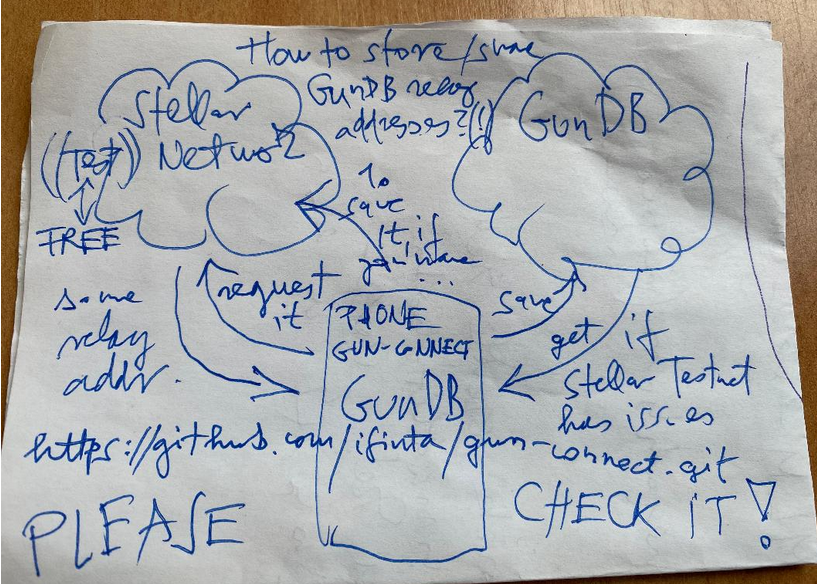 How to store/share
GunDB relay
addresses?(!)
Stellar
Network
((Test))
FREE
GunDB
To
save
it, if
you have
...
request
it
some
relay
addr.
PHONE
GUN-CONNECT
GunDB
save
get if
Stellar Testnet
has issues
https://github.com/ifinta/gun-connect.git
PLEASE
CHECK IT!